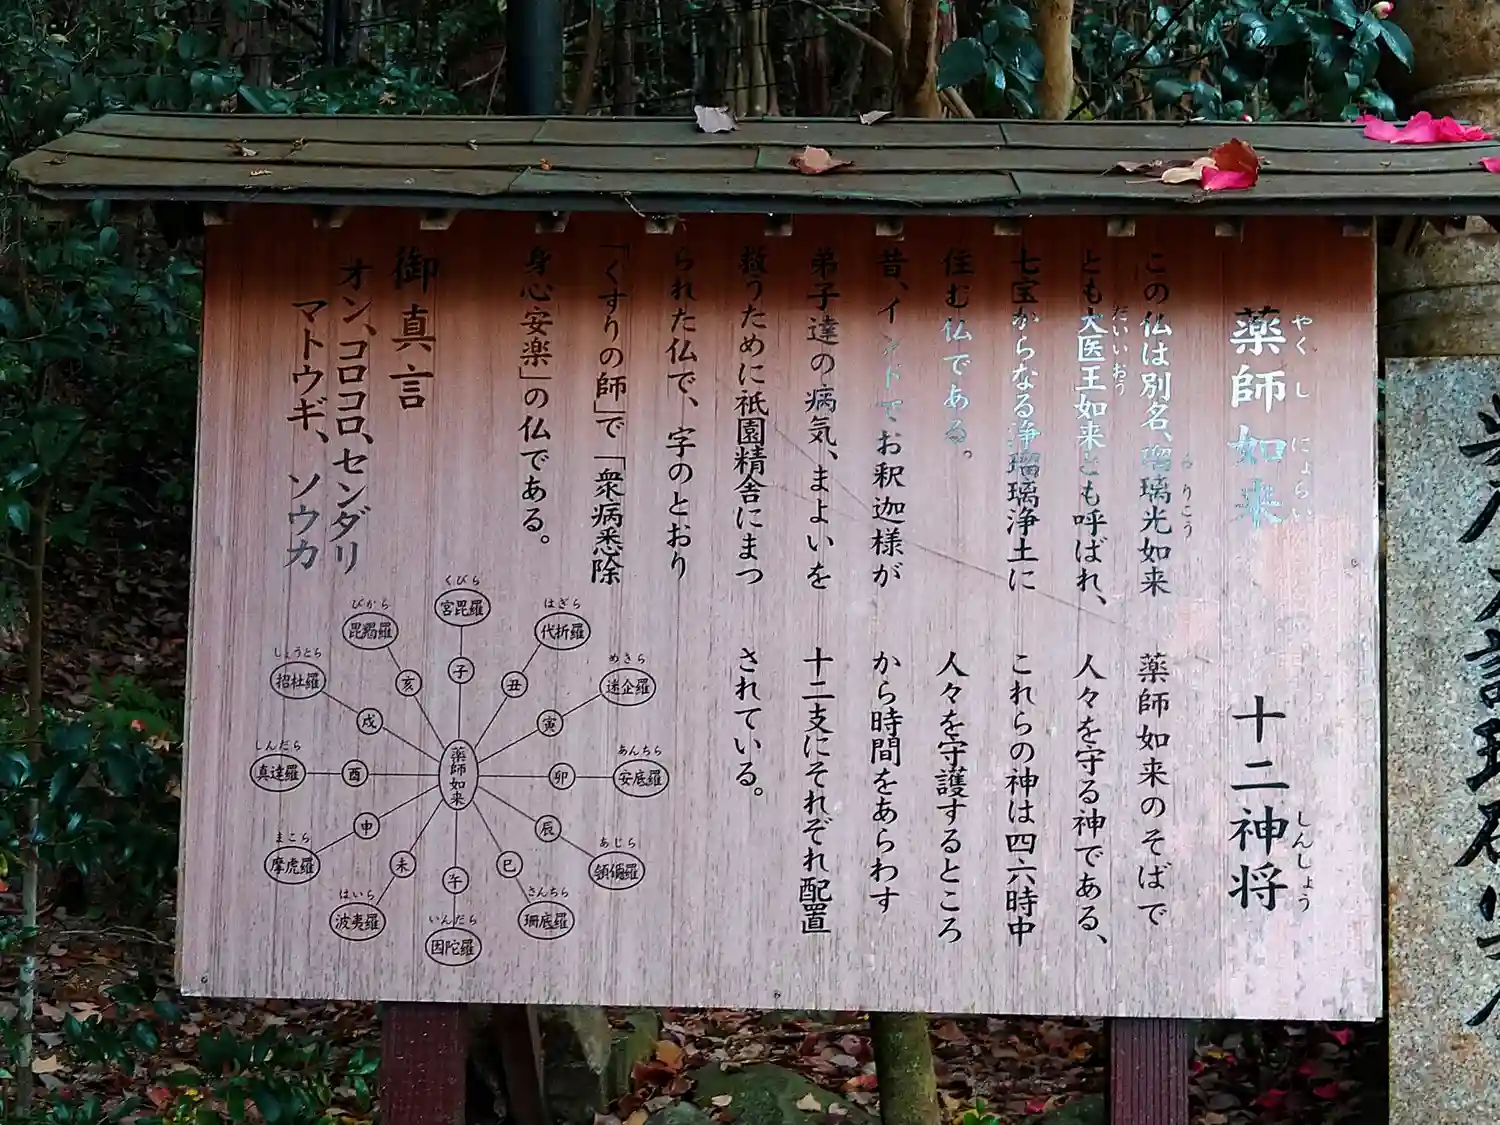 薬師如来
やくし にょらい
この仏は別名、瑠璃光如来
るりこう
とも大医王如来とも呼ばれ、
だいいおう
七宝からなる浄瑠璃浄土に
住む仏である。
昔、インドでお釈迦様が
弟子達の病気、まよいを
救うために祇園精舎にまつ
られた仏で、字のとおり
「くすりの師」で「衆病悉除
身心安楽」の仏である。
御真言
オン、コロコロ、センダリ
マトウギ、ソウカ
十二神将
しんしょう
薬師如来のそばで
人々を守る神である、
これらの神は四六時中
人々を守護するところ
から時間をあらわす
十二支にそれぞれ配置
されている。
薬師如来
子
くびら
宮毘羅
丑
はぎら
代折羅
寅
めきら
迷企羅
卯
あんちら
安底羅
辰
あじら
頞儞羅
巳
さんちら
珊底羅
午
いんだら
因陀羅
未
はいら
波夷羅
申
まこら
摩虎羅
酉
しんだら
真達羅
戌
しょうとら
招杜羅
亥
びから
毘羯羅